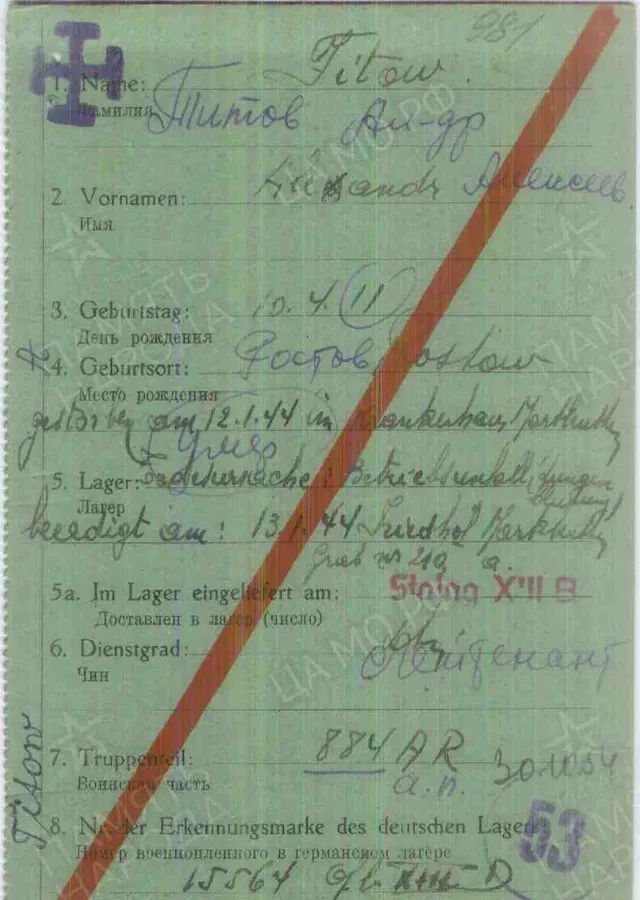 981
1. Name: Titow.
Фамилия Титов Ал-др
2. Vornamen: Alexandr Алексеев.
Имя
3. Geburtstag: 10.4.11
День рождения
4. Geburtsort: Ростов Rostow
Место рождения
gestorben am 12.1.44 im Krankenhaus
умер
5. Lager: Todesursache: Betriebsunfall
Лагер
beerdigt am: 13.1.44 Friedhof
Grab Nr 210 a.
5a. Im Lager eingeliefert am: Stalag XII B
Доставлен в лагер (число)
6. Dienstgrad: Лейтенант
Чин
7. Truppenteil: 884 AR
Воинская часть а.п.
Titow
8. Nr. der Erkennungsmarke des deutschen Lagers
53
Номер военнопленного в германском лагере
15564
ЦА МО РФ
ПАМЯТЬ НАРОДА